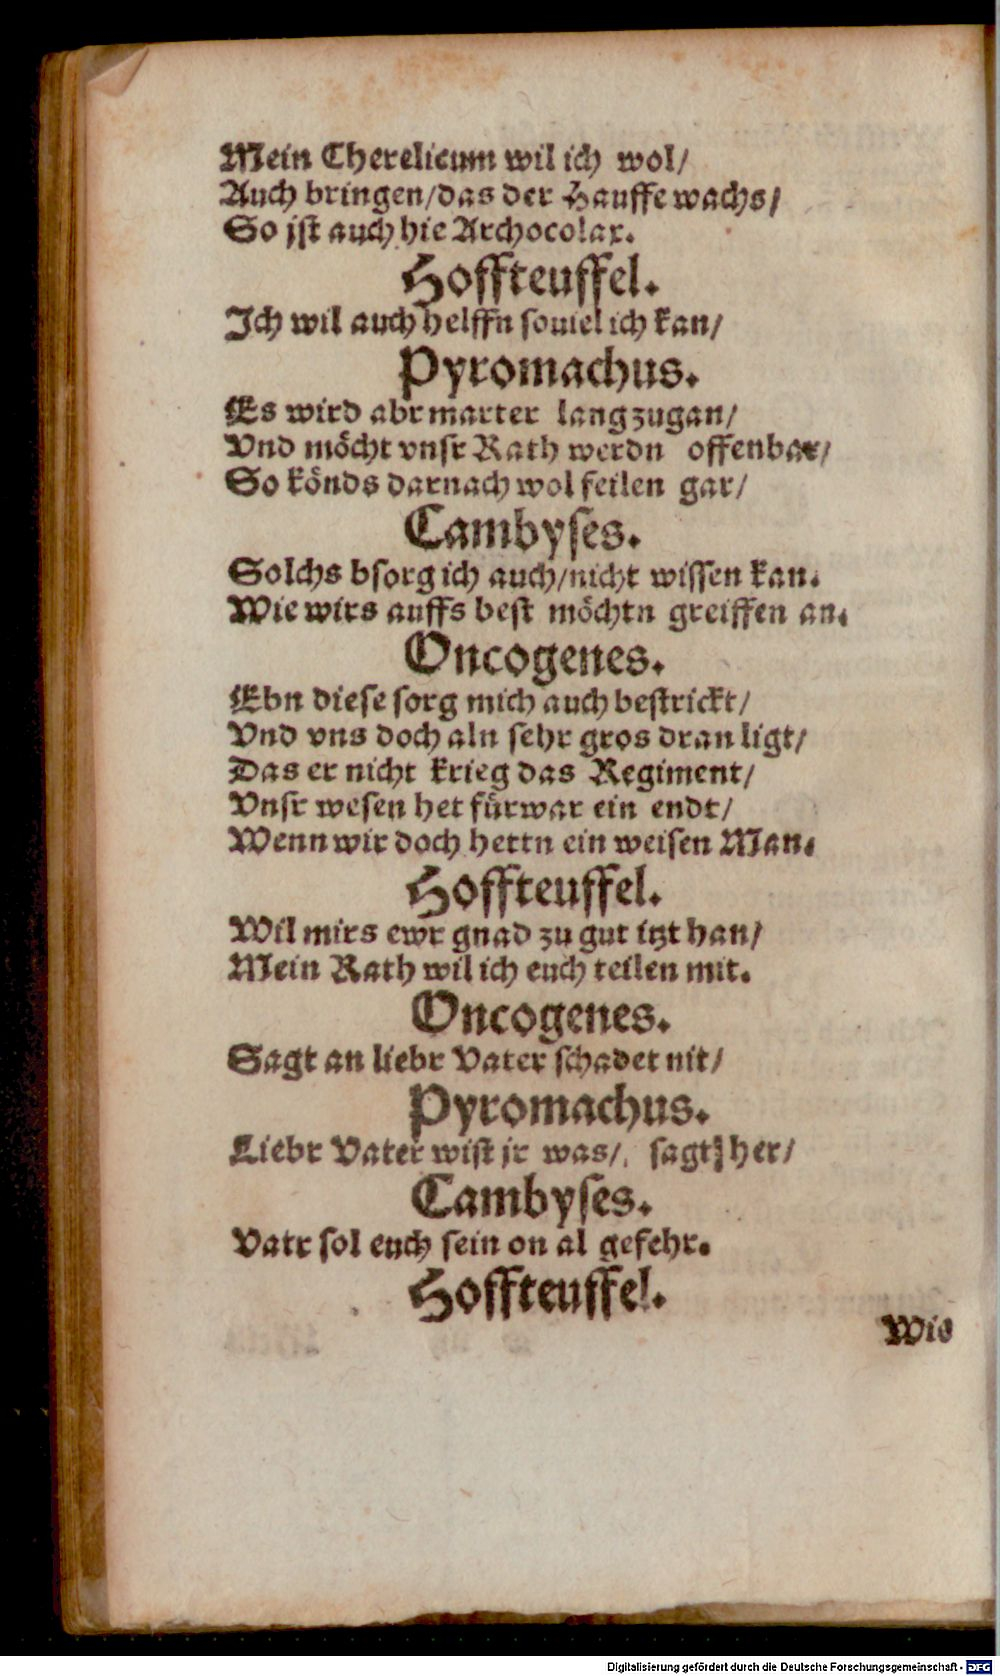 Mein Cherelicum wil ich wol/
Auch bringen/das der Hauffe wachs/
So jst auch hie Archocolax.
Hoffteuffel.
Ich wil auch helffn souiel ich kan/
Pyromachus.
Es wird abr marter lang zugan/
Vnd möcht vnsr Rath werdn offenbar/
So könds darnach wol feilen gar/
Cambyses.
Solchs bsorg ich auch/nicht wissen kan.
Wie wirs auffs best möchtn greiffen an.
Oncogenes.
Ebn diese sorg mich auch bestrickt/
Vnd vns doch aln sehr gros dran ligt/
Das er nicht krieg das Regiment/
Vnsr wesen het fürwar ein endt/
Wenn wir doch hettn ein weisen Man.
Hoffteuffel.
Wil mirs ewr gnad zu gut itzt han/
Mein Rath wil ich euch teilen mit.
Oncogenes.
Sagt an liebr Vater schadet nit/
Pyromachus.
Liebr Vater wist jr was/ sagt her/
Cambyses.
Vatr sol euch sein on al gefehr.
Hoffteuffel.
Wie
Digitalisierung gefördert durch die Deutsche Forschungsgemeinschaft - DFG